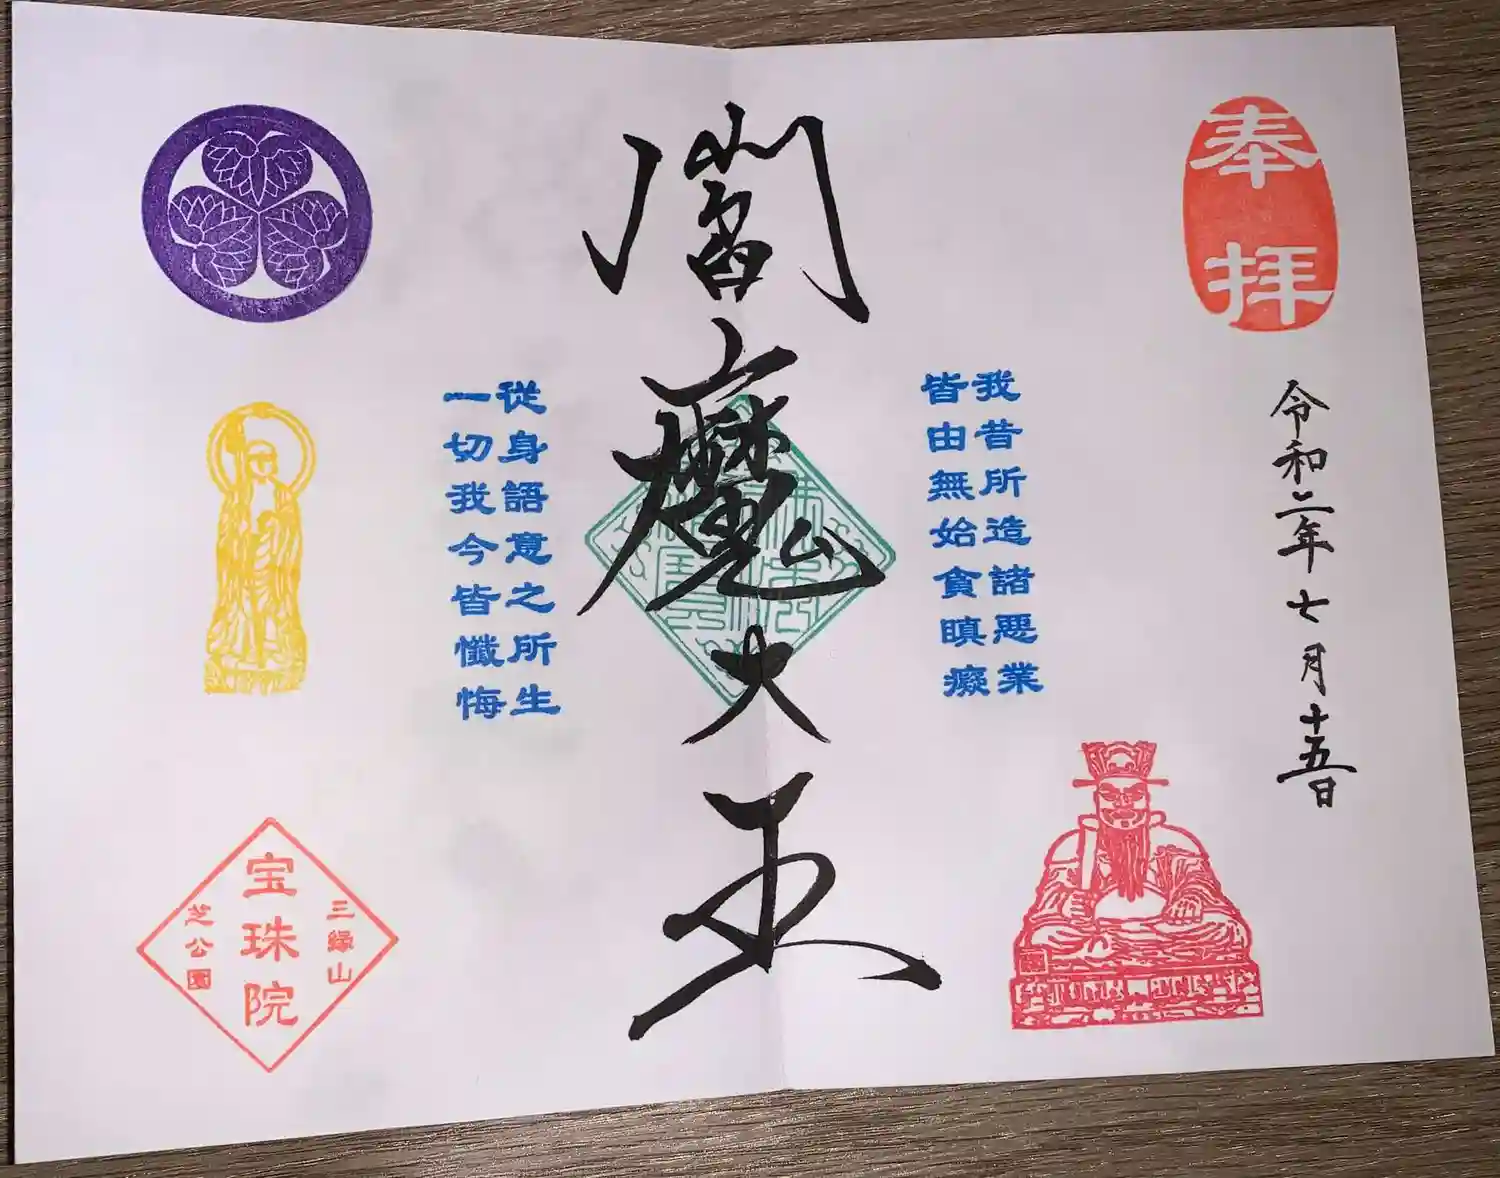 奉拝
令和三年七月十五日
我昔所造諸悪業
皆由無始貪瞋癡
閻魔大王
従身語意之所生
一切我今皆懺悔
三縁山
宝珠院
芝公園